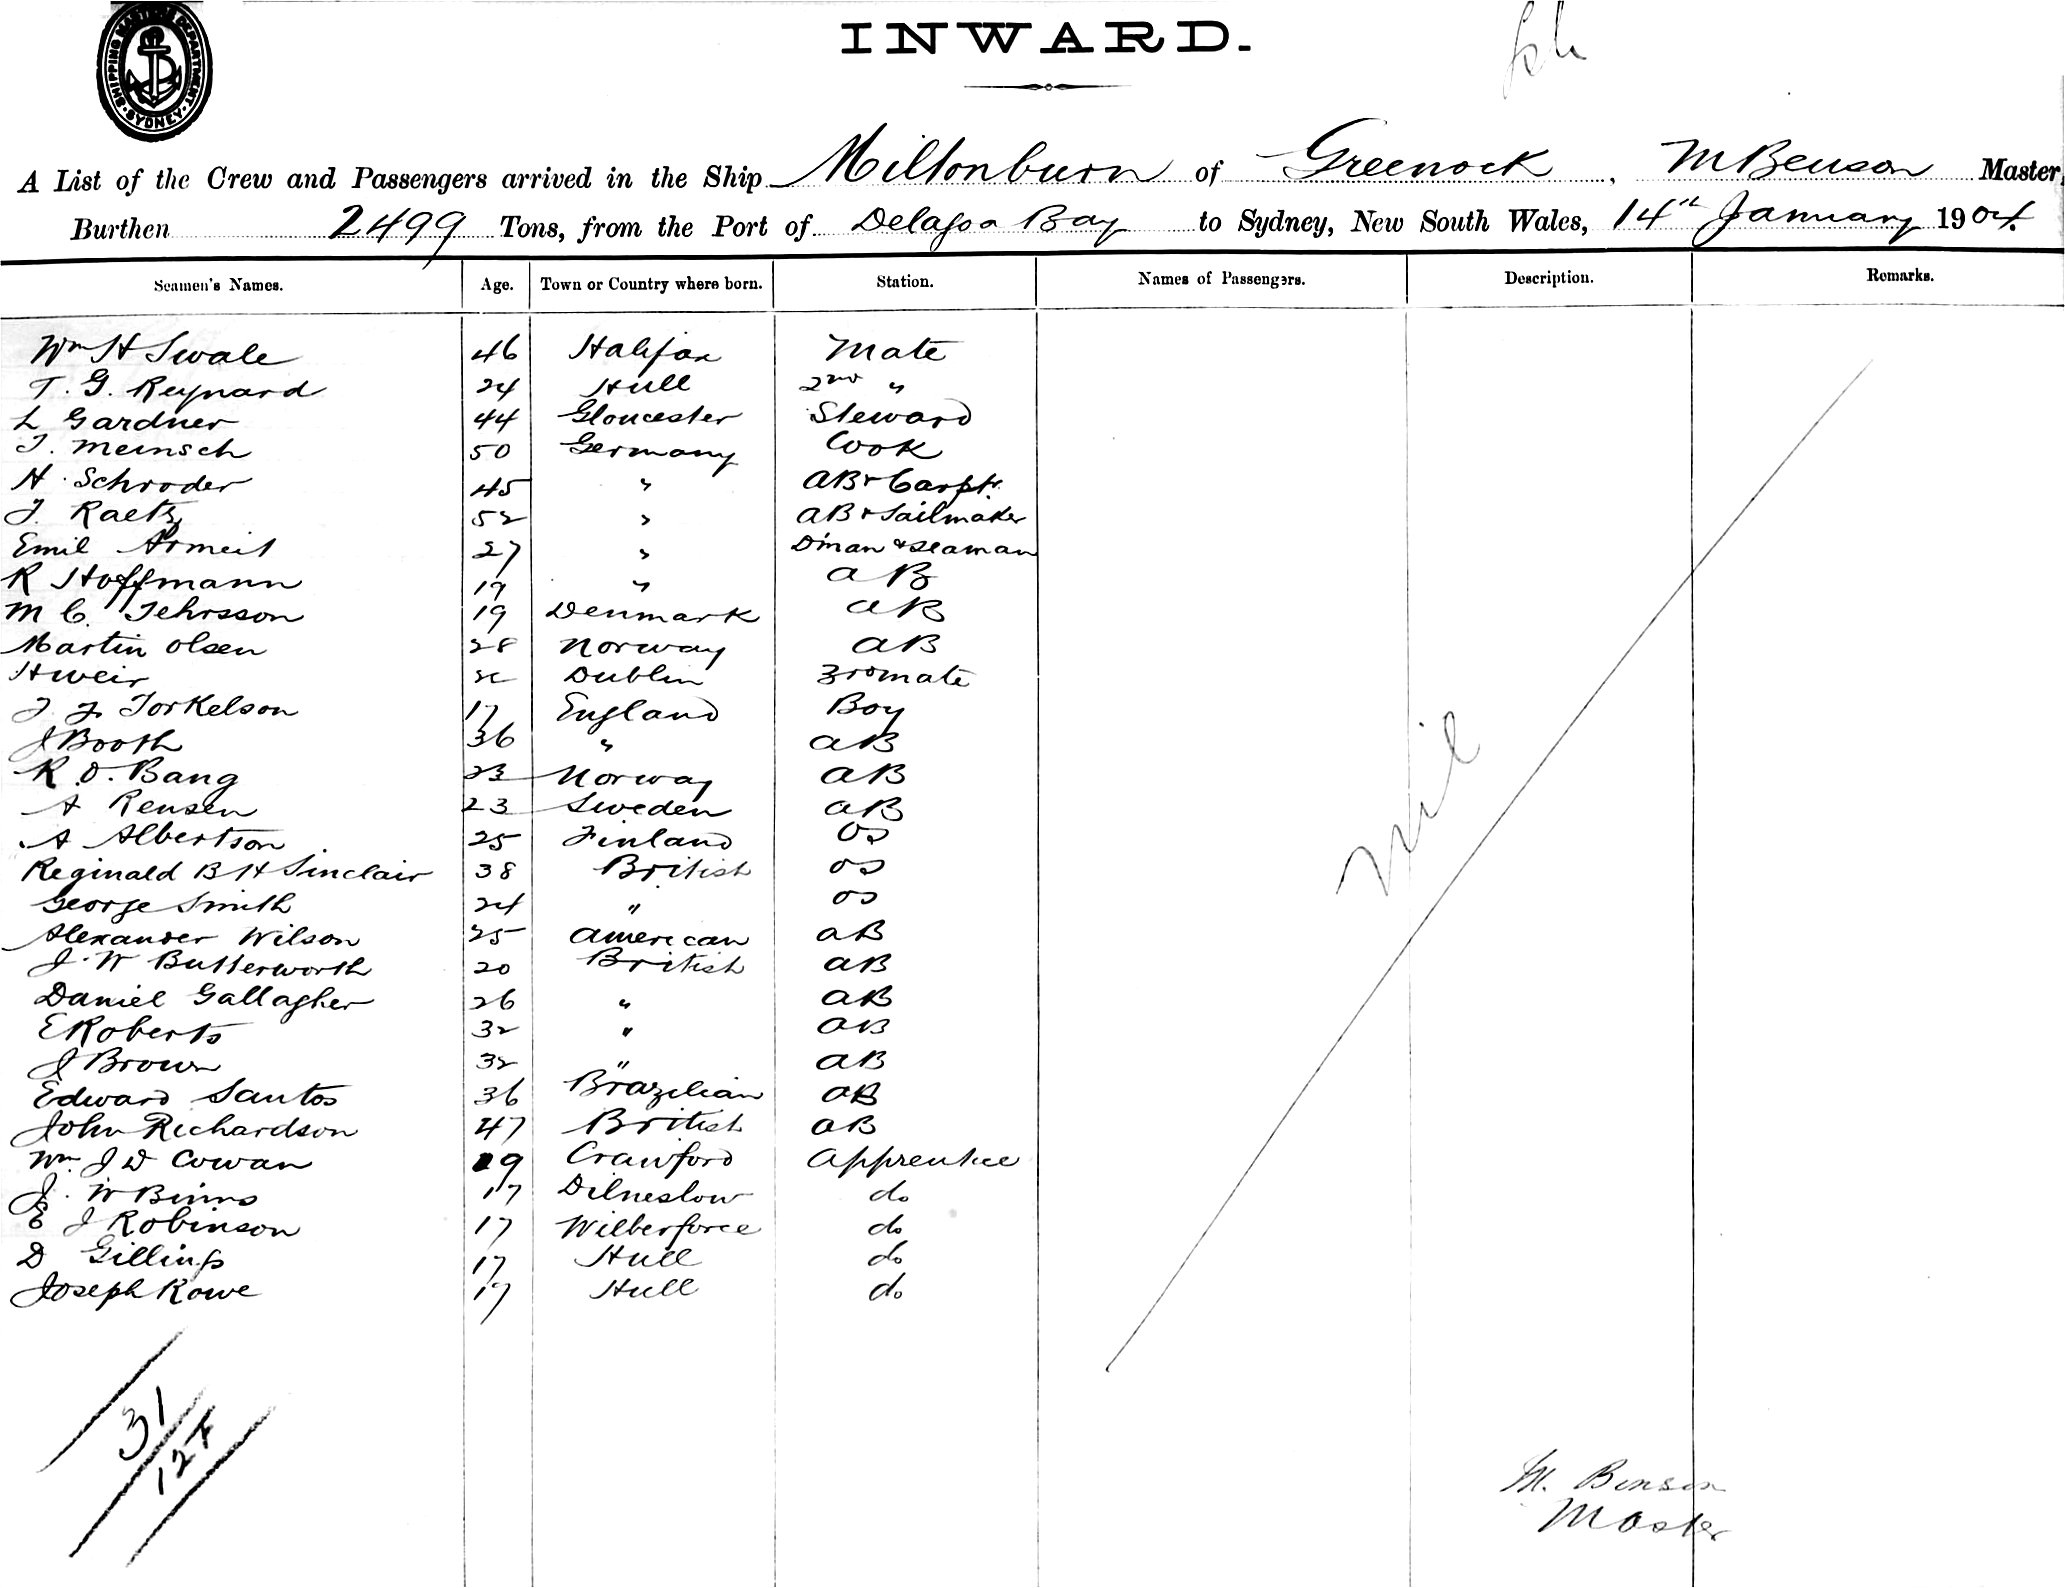 SHIPPING MASTER'S DEPARTMENT. SYDNEY
INWARD.
A List of the Crew and Passengers arrived in the Ship Miltonburn of Greenock, M Benson Master,
Burthen 2499 Tons, from the Port of Delagoa Bay to Sydney, New South Wales, 14th January 1904.
Seamen's Names. Age. Town or Country where born. Station. Names of Passengers. Description. Remarks.
Wm H Swale 46 Halifax Mate
T. G. Reynard 24 Hull 2nd "
L Gardner 44 Gloucester Steward
J. Meinsch 50 Germany Cook
H. Schroder 45 " AB & Carptr.
J. Raetz 52 " AB & Sailmaker
Emil 27 " D'man & Seaman
R Hoffmann 19 " AB
M C. Jehrsson 19 Denmark AB
Martin Olsen 28 Norway AB
H Weir Dublin 3rd mate
J. J. Torkelson 17 England Boy
J Booth 36 " AB
R O. Bang 23 Norway AB
A Rensen 23 Sweden AB
A Albertson 25 Finland OS
Reginald B H Sinclair 38 British OS
George Smith 24 " OS
Alexander Wilson 25 American AB
J. W Butterworth 20 British AB
Daniel Gallagher 26 " AB
E Roberts 32 " AB
J Brown 32 " AB
Edward Santos 36 Brazilian AB
John Richardson 47 British AB
Wm. J D Cowan 19 Crawford Apprentice
J. W Binns 17 do
E J Robinson 17 Wilberforce do
D Gillings 17 Hull do
Joseph Rowe 17 Hull do
Nil
31
12
M. Benson
Master